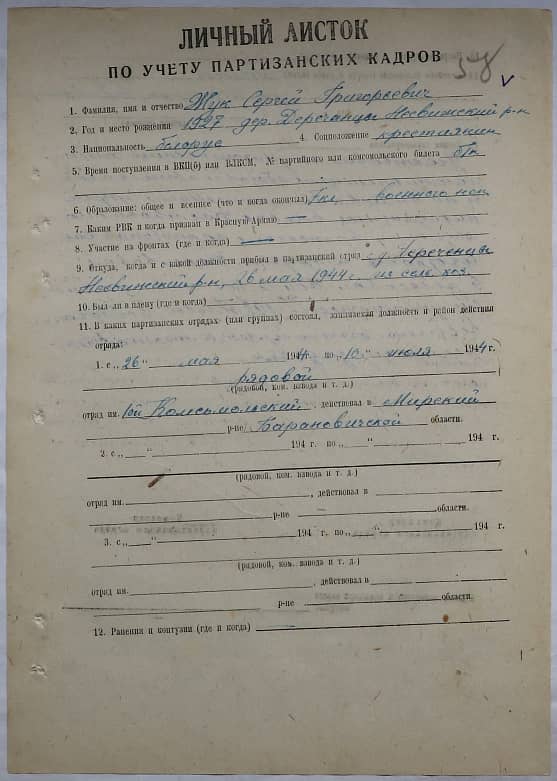 ЛИЧНЫЙ ЛИСТОК
ПО УЧЕТУ ПАРТИЗАНСКИХ КАДРОВ
1. Фамилия, имя и отчество Жук Сергей Григорьевич
2. Год и место рождения 1927 дер. Деречанцы Несвижский р-н
3. Национальность белорус 4. Соцположение крестьянин
5. Время поступления в ВКП(б) или ВЛКСМ, № партийного или комсомольского билета б/п
6. Образование: общее и военное (что и когда окончил) военного нет
7. Каким РВК и когда призван в Красную Армию —
8. Участие на фронтах (где и когда) —
9. Откуда, когда и с какой должности прибыл в партизанский отряд с д.
Несвижский р-н, 26 мая 1944 г. из село хоз.
10. Был ли в плену (где и когда)
11. В каких партизанских отрядах (или группах) состоял, занимаемая должность и район действия
отряда:
1. с „26" мая 1944 г. по „10" июля 1944 г.
рядовой
(рядовой, ком. взвода и т. д.)
отряд им. Комсомольский, действовал в Мирский
р-не Барановичской области.
2. с „ " 194 г. по „ " 194 г.
(рядовой, ком. взвода и т. д.)
отряд им. , действовал в
р-не области.
3. с „ " 194 г. по „ " 194 г.
(рядовой, ком. взвода и т. д.)
отряд им. , действовал в
р-не области.
12. Ранения и контузии (где и когда)